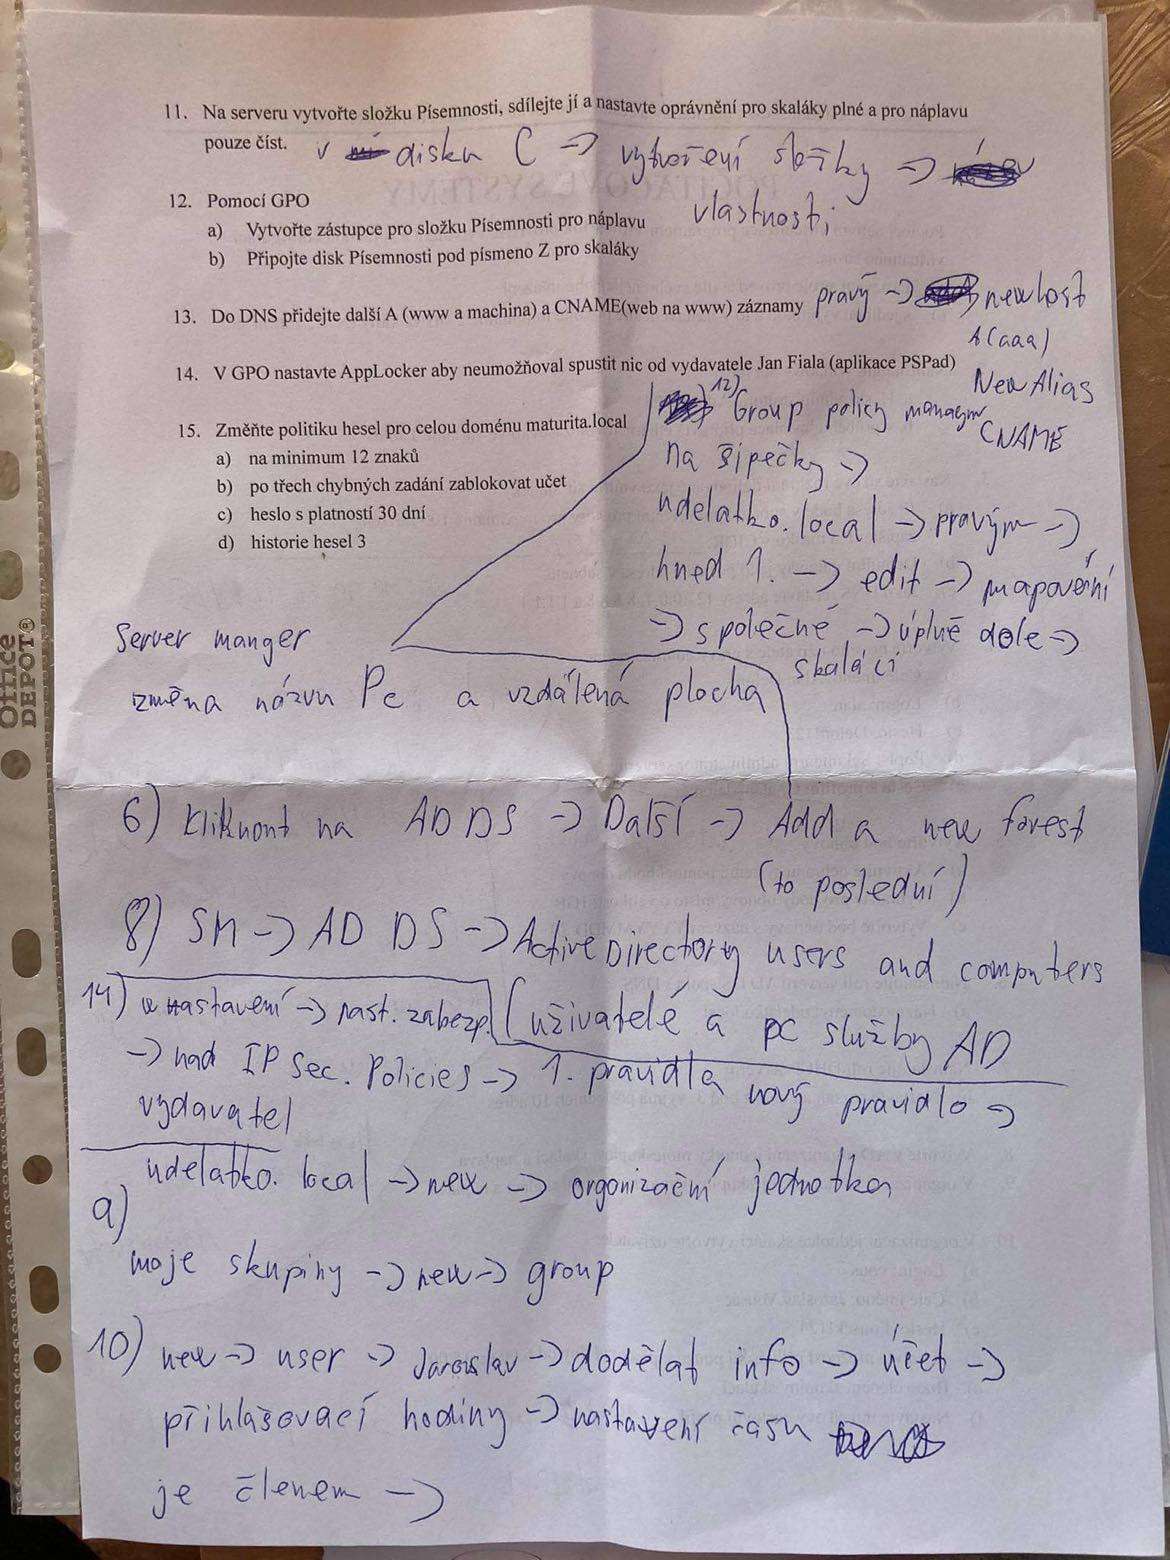 11. Na serveru vytvořte složku Písemnosti, sdílejte jí a nastavte oprávnění pro skaláky plné a pro náplavu
pouze číst.
v disku C -> vytvoření složky ->
vlastnosti
12. Pomocí GPO
a) Vytvořte zástupce pro složku Písemnosti pro náplavu
b) Připojte disk Písemnosti pod písmeno Z pro skaláky
13. Do DNS přidejte další A (www a machina) a CNAME(web na www) záznamy
pravý -> new host
A(aaa)
New Alias
CNAME
14. V GPO nastavte AppLocker aby neumožňoval spustit nic od vydavatele Jan Fiala (aplikace PSPad)
15. Změňte politiku hesel pro celou doménu maturita.local
a) na minimum 12 znaků
b) po třech chybných zadání zablokovat učet
c) heslo s platností 30 dní
d) historie hesel 3
12) Group policy managm
na šipečky ->
udelatko.local -> pravým ->
hned 1. -> edit -> mapování
-> společné -> úplně dole ->
skaláci
Server manger
změna názvu Pc a vzdálená plocha
Office DEPOT®
6) Kliknout na AD DS -> Další -> Add a new forest
(to poslední)
8) SM -> AD DS -> Active Directory users and computers
(uživatelé a pc služby AD
14) nastavení -> nast. zabezp.
-> nad IP Sec. Policies -> 1. pravidla nový pravidlo ->
vydavatel
udelatko.local -> new -> organizační jednotka
9)
moje skupiny -> new -> group
10) new -> user -> Jaroslav -> dodělat info -> účet ->
přihlašovací hodiny -> nastavení času
je členem ->